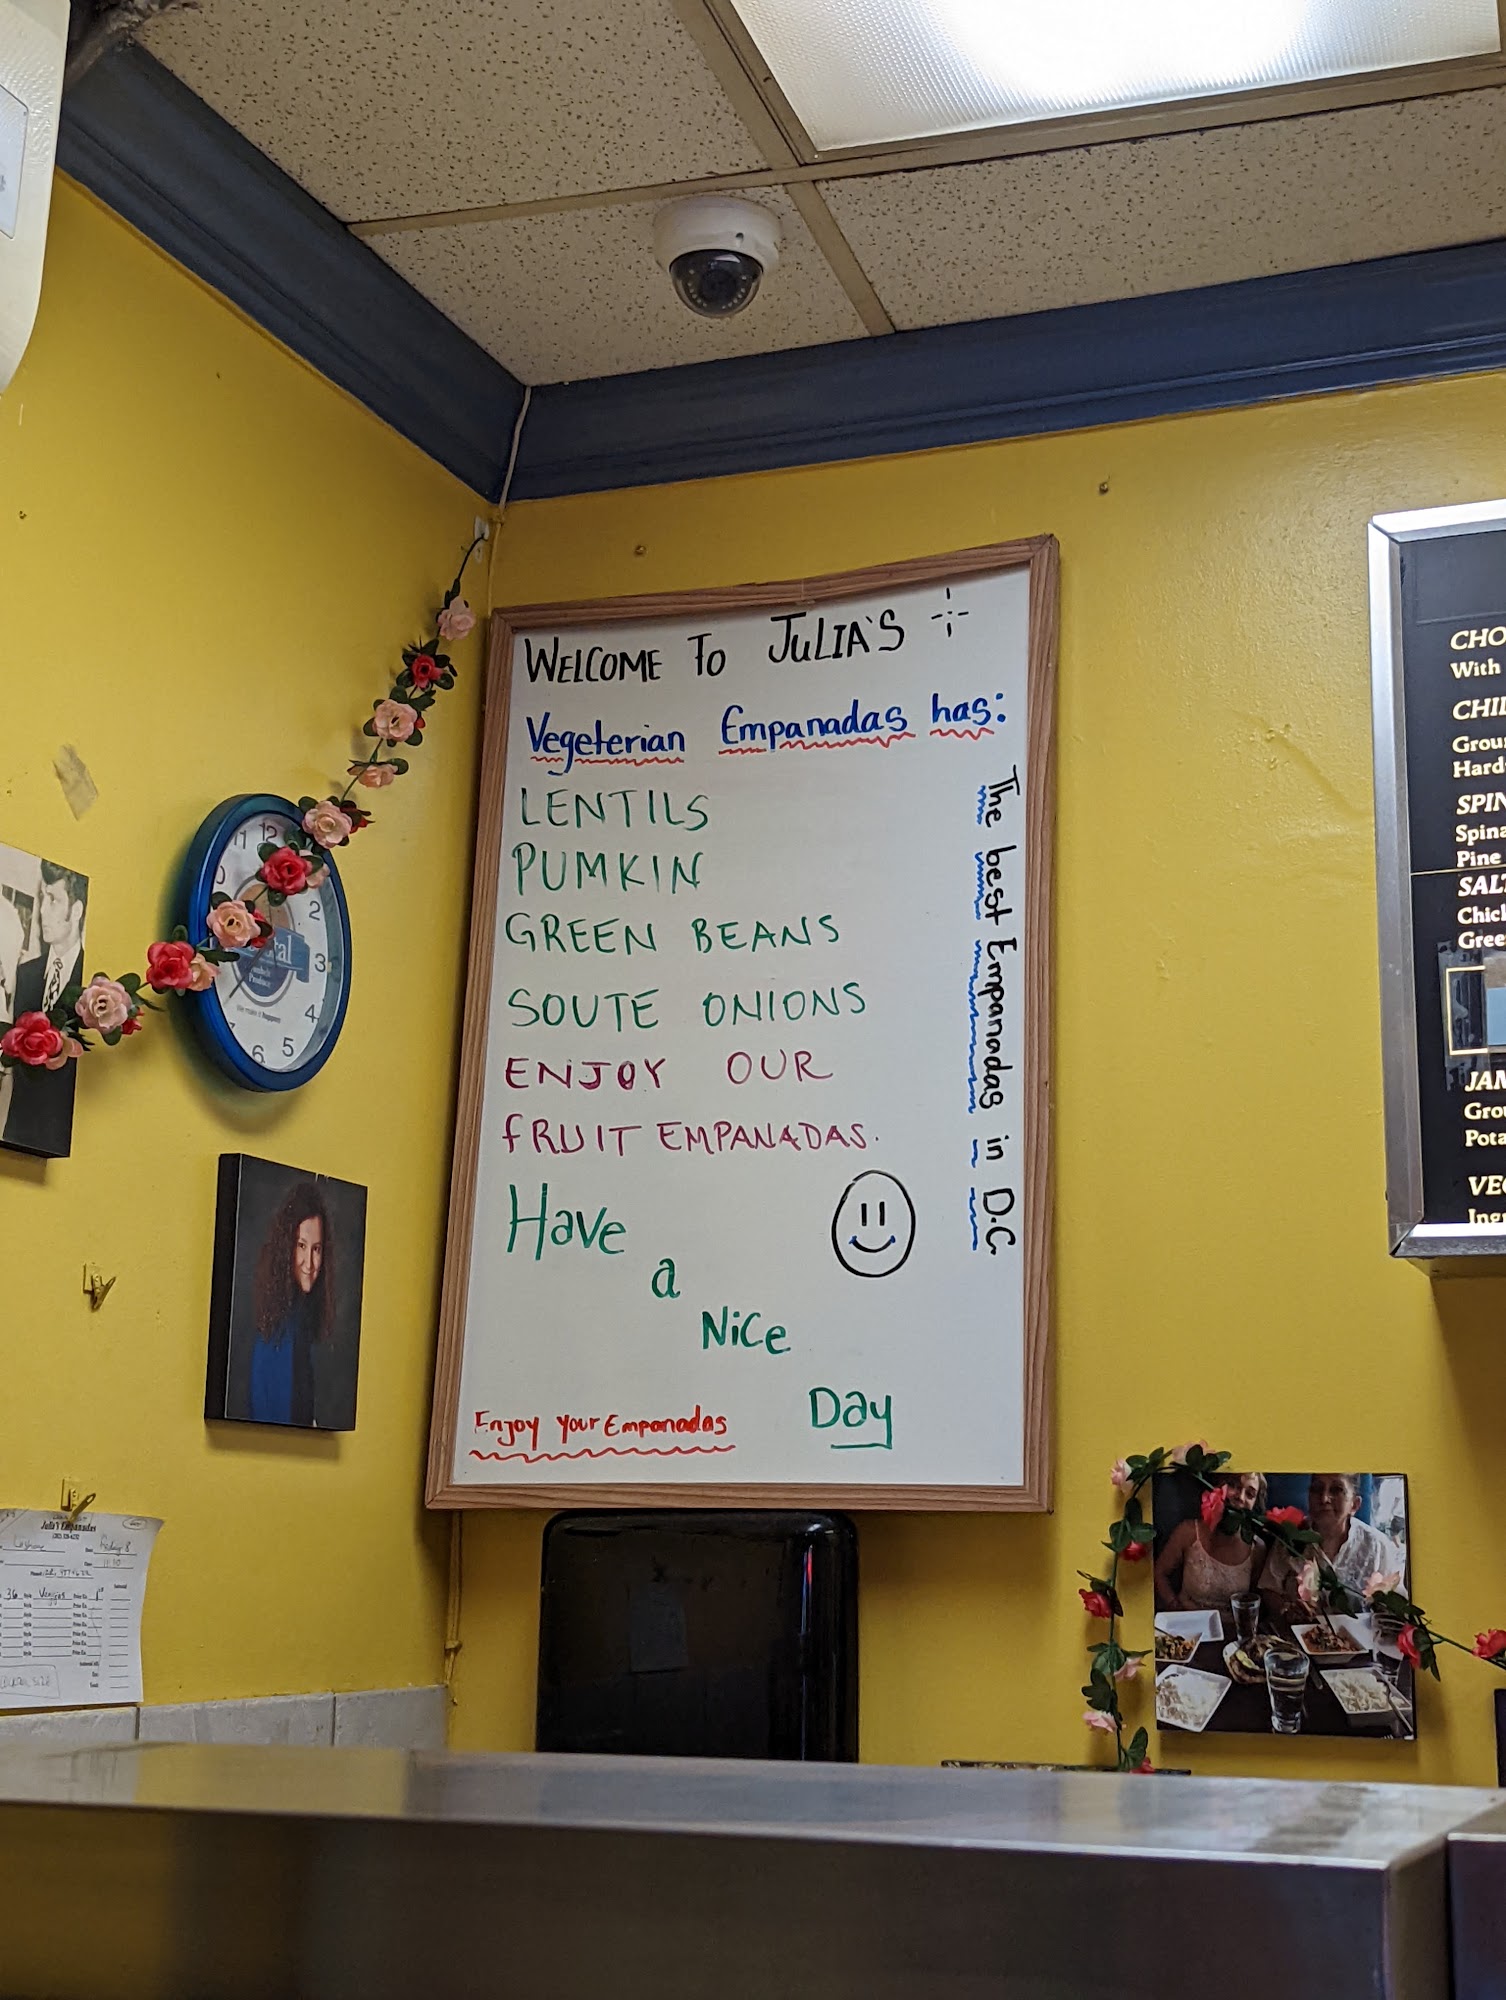 WELCOME TO JULIA'S
Vegeterian Empanadas has:
LENTILS
PUMKIN
GREEN BEANS
SOUTE ONIONS
ENJOY OUR
fRUIT EMPANADAS.
Have
a
Nice
Day
Enjoy your Empanadas
The best Empanadas in D.C.
11 12
2
3
4
5
6
We make it happen
Julia's Empanadas
36
CHO
With
CHIL
Grou
Hard
SPIN
Spina
Pine
SALT
Chick
Gree
JAM
Grou
Pota
VEG